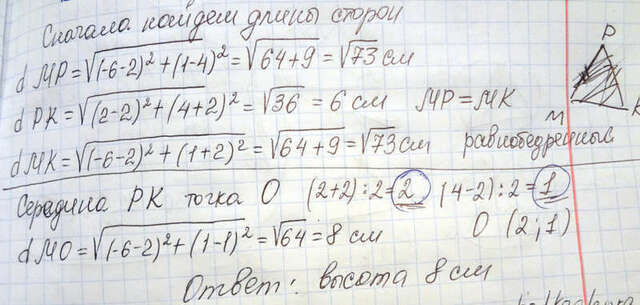 Сначала найдем длины сторон
d MP=√(-6-2)²+(1-4)²=√64+9=√73 см
P
d PK=√(2-2)²+(4+2)²=√36=6 см MP=MK
M K
d MK=√(-6-2)²+(1+2)²=√64+9=√73 см равнобедренный
Середина PK точка O (2+2):2=2 (4-2):2=1
d MO=√(-6-2)²+(1-1)²=√64=8 см O (2;1)
Ответ: высота 8 см